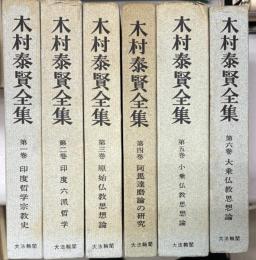 木村泰賢全集
第一巻 印度哲学宗教史
大法輪閣
木村泰賢全集
第二巻 印度六派哲学
大法輪閣
木村泰賢全集
第三巻 原始仏教思想論
大法輪閣
木村泰賢全集
第四巻 阿毘達磨論の研究
大法輪閣
木村泰賢全集
第五巻 小乗仏教思想論
大法輪閣
木村泰賢全集
第六巻 大乗仏教思想論
大法輪閣